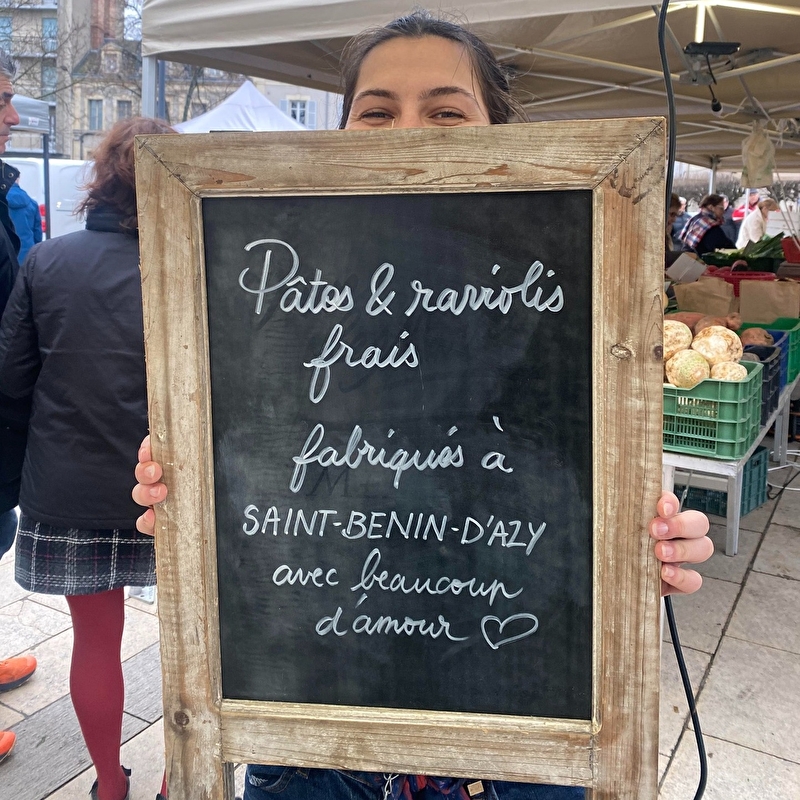 Pâtes & raviolis
frais
fabriqués à
SAINT-BENIN-D'AZY
avec beaucoup
d'amour ♡